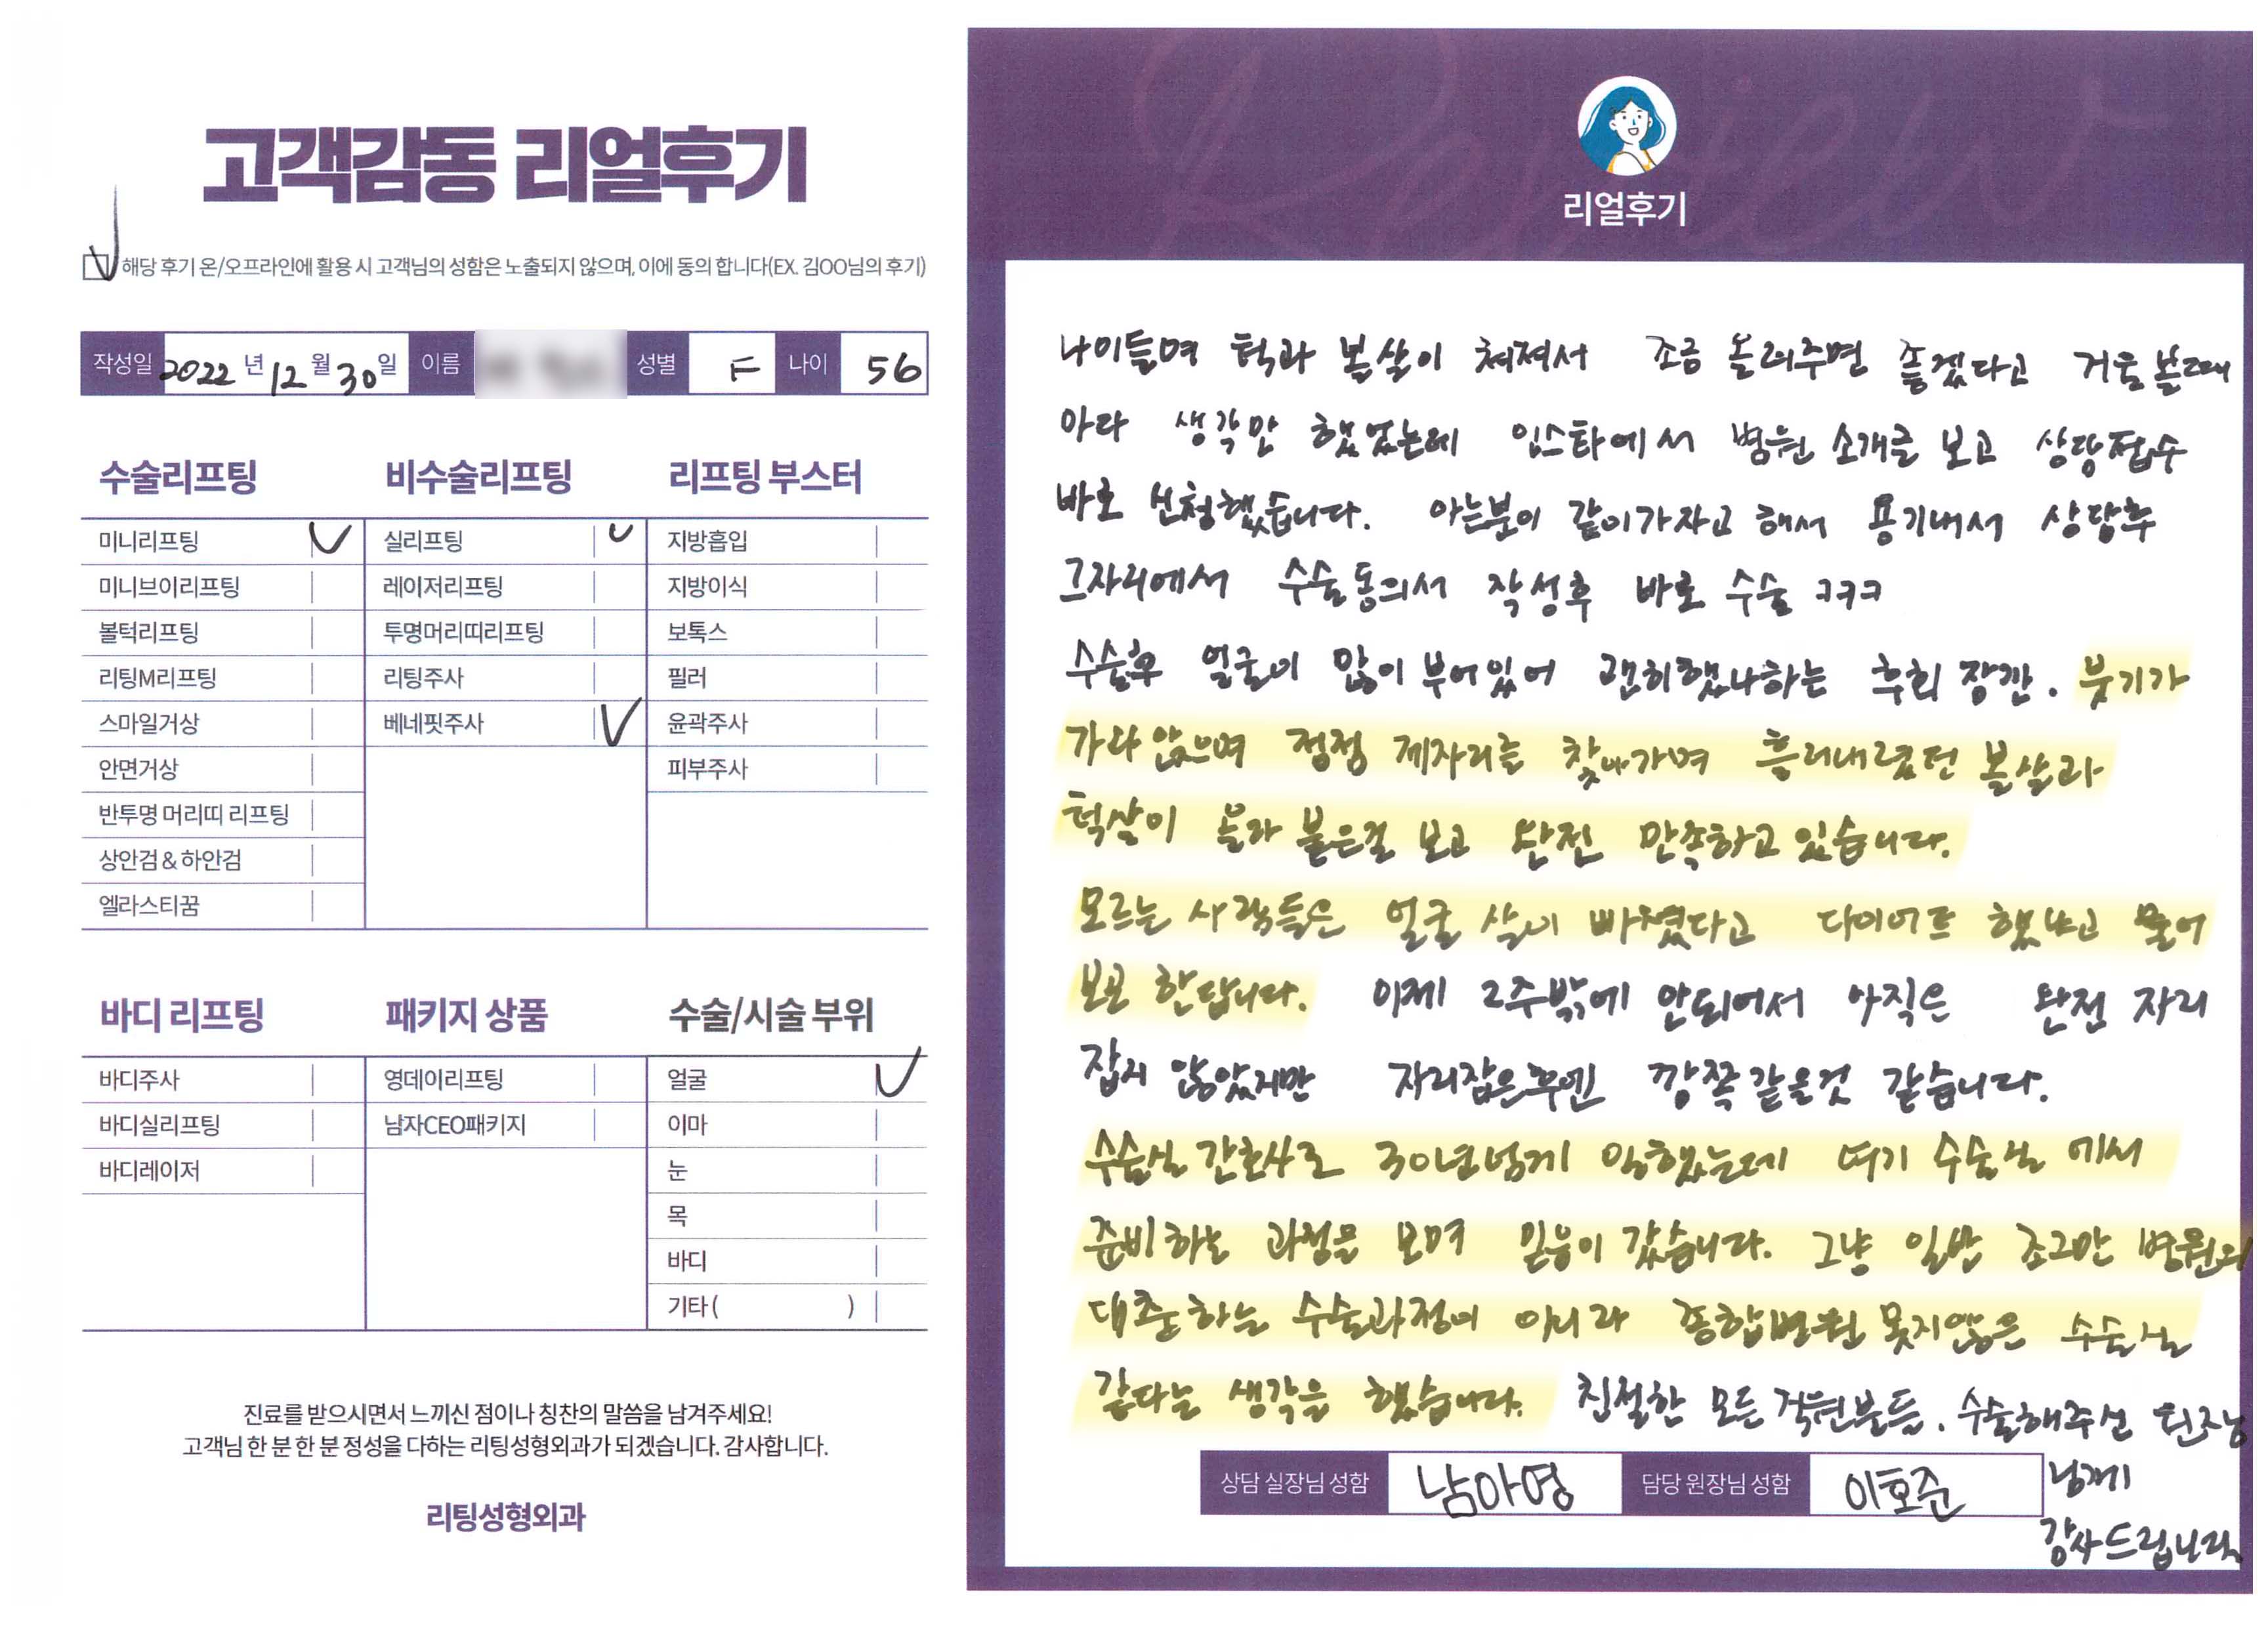 고객감동 리얼후기
해당 후기 온/오프라인에 활용 시 고객님의 성함은 노출되지 않으며, 이에 동의 합니다(EX. 김OO님의 후기)
작성일 2022 년 12 월 30 일 이름 성별 F 나이 56
수술리프팅
미니리프팅
미니브이리프팅
볼턱리프팅
리팅M리프팅
스마일거상
안면거상
반투명 머리띠 리프팅
상안검 & 하안검
엘라스티꿈
비수술리프팅
실리프팅
레이저리프팅
투명머리띠리프팅
리팅주사
베네핏주사
리프팅 부스터
지방흡입
지방이식
보톡스
필러
윤곽주사
피부주사
바디 리프팅
바디주사
바디실리프팅
바디레이저
패키지 상품
영데이리프팅
남자CEO패키지
수술/시술 부위
얼굴
이마
눈
목
바디
기타 ( )
진료를 받으시면서 느끼신 점이나 칭찬의 말씀을 남겨주세요!
고객님 한 분 한 분 정성을 다하는 리팅성형외과가 되겠습니다. 감사합니다.
리팅성형외과
Review
리얼후기
나이들며 턱과 볼살이 쳐져서 조금 올려주면 좋겠다고 거울볼때
마다 생각만 했었는데 인스타에서 병원 소개글 보고 상담접수
바로 신청했습니다. 아는분이 같이가자고 해서 용기내서 상담후
그자리에서 수술동의서 작성후 바로 수술 ㅋㅋㅋ
수술후 얼굴이 많이 부어있어 괜히했나하는 후회 잠깐. 붓기가
가라앉으며 점점 제자리를 찾아가며 흘러내렸던 볼살과
턱살이 올라 붙은걸 보고 완전 만족하고 있습니다.
모르는 사람들은 얼굴 살이 빠졌다고 다이어트 했냐고 물어
보곤 한답니다. 이제 2주밖에 안되어서 아직은 완전 자리
잡지 않았지만 자리잡은후엔 깜쪽같을것 같습니다.
수술실 간호사로 30년넘게 일했는데 여기 수술실 에서
준비하는 과정을 보며 믿음이 갔습니다. 그냥 일반 조그만 병원의
대충하는 수술과정이 아니라 종합병원 못지않은 수술실
같다는 생각을 했습니다. 친절한 모든 직원분들. 수술해주신 원장
님께
감사드립니다.
상담 실장님 성함 남아영 담당 원장님 성함 이호준